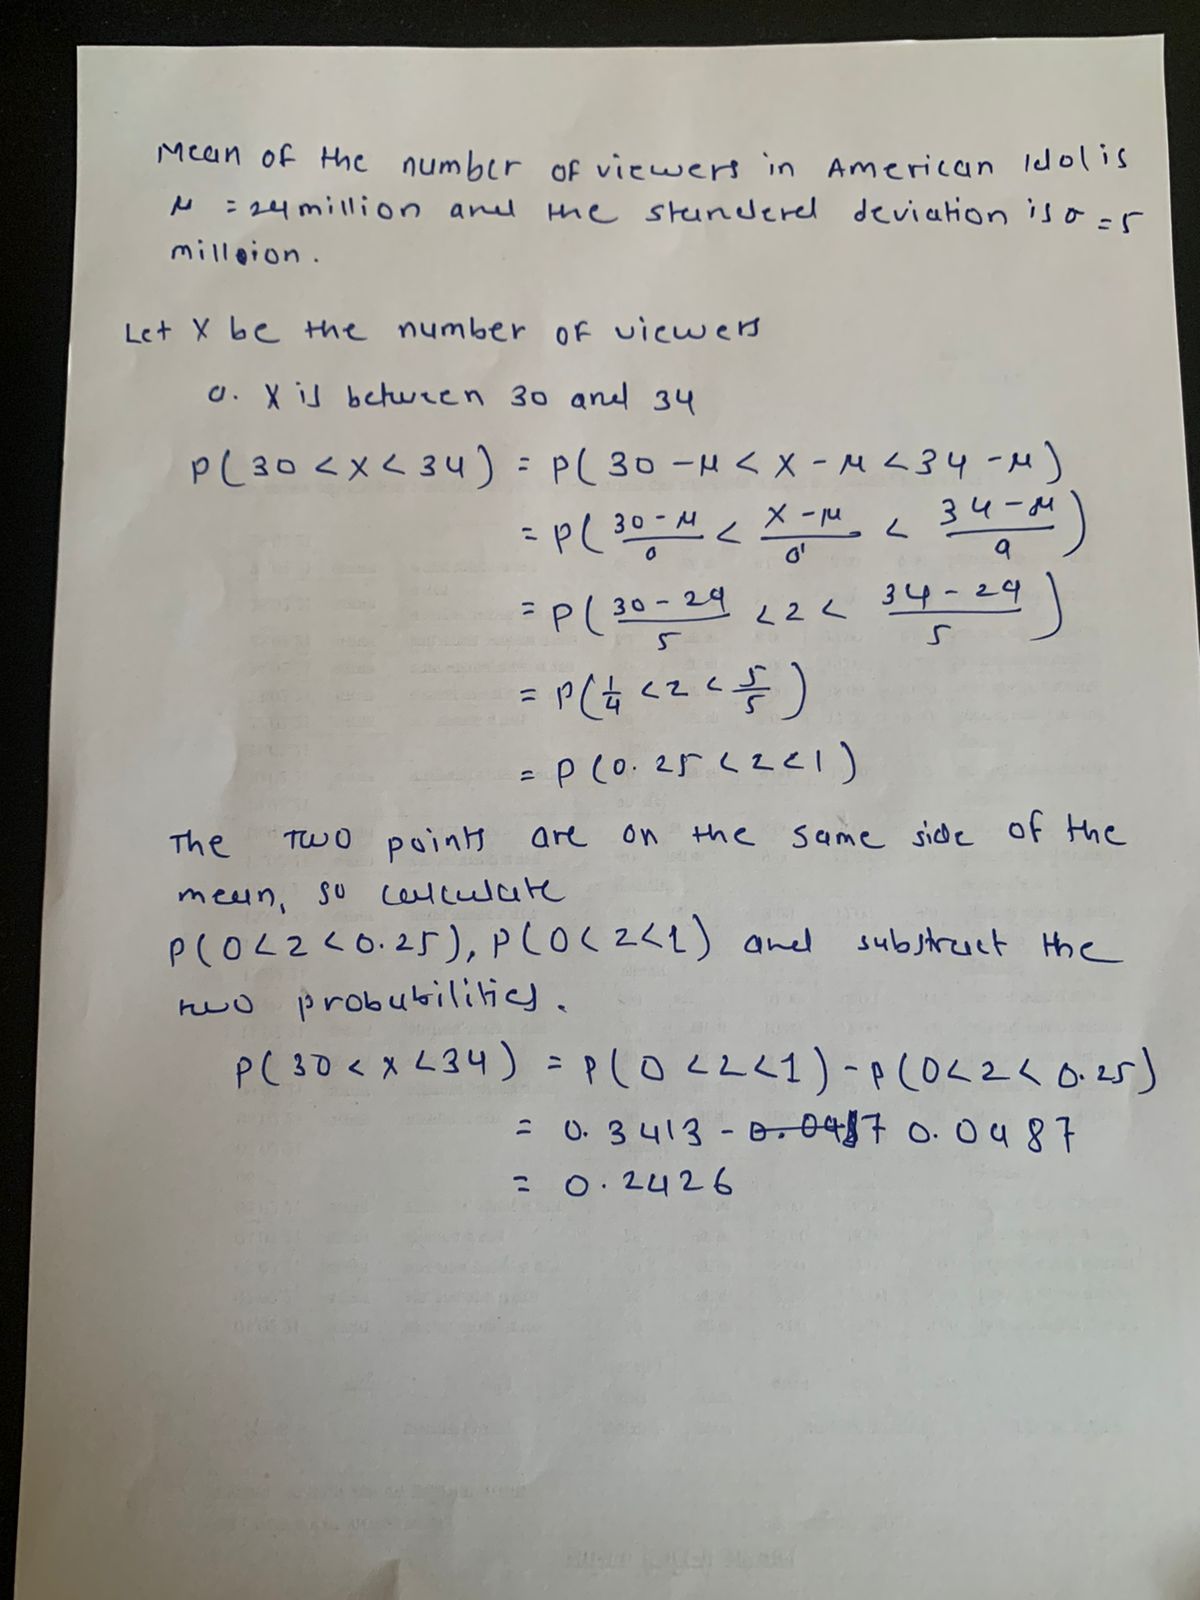 Mean of the number of viewers in American Idol is
μ = 24 million and the standerd deviation is σ = 5
million.
Let X be the number of viewers
a. X is between 30 and 34
P(30 < X < 34) = P(30 - μ < X - μ < 34 - μ)
= P(30 - μ/σ < X - μ/σ < 34 - μ/σ)
= P(30 - 29/5 < z < 34 - 29/5)
= P(1/4 < z < 5/5)
= P(0.25 < z < 1)
The TWO points are on the same side of the
mean, so calculate
P(0 < z < 0.25), P(0 < z < 1) and substract the
two probabilities.
P(30 < x < 34) = P(0 < z < 1) - P(0 < z < 0.25)
= 0.3413 - 0.0487 0.0487
= 0.2426